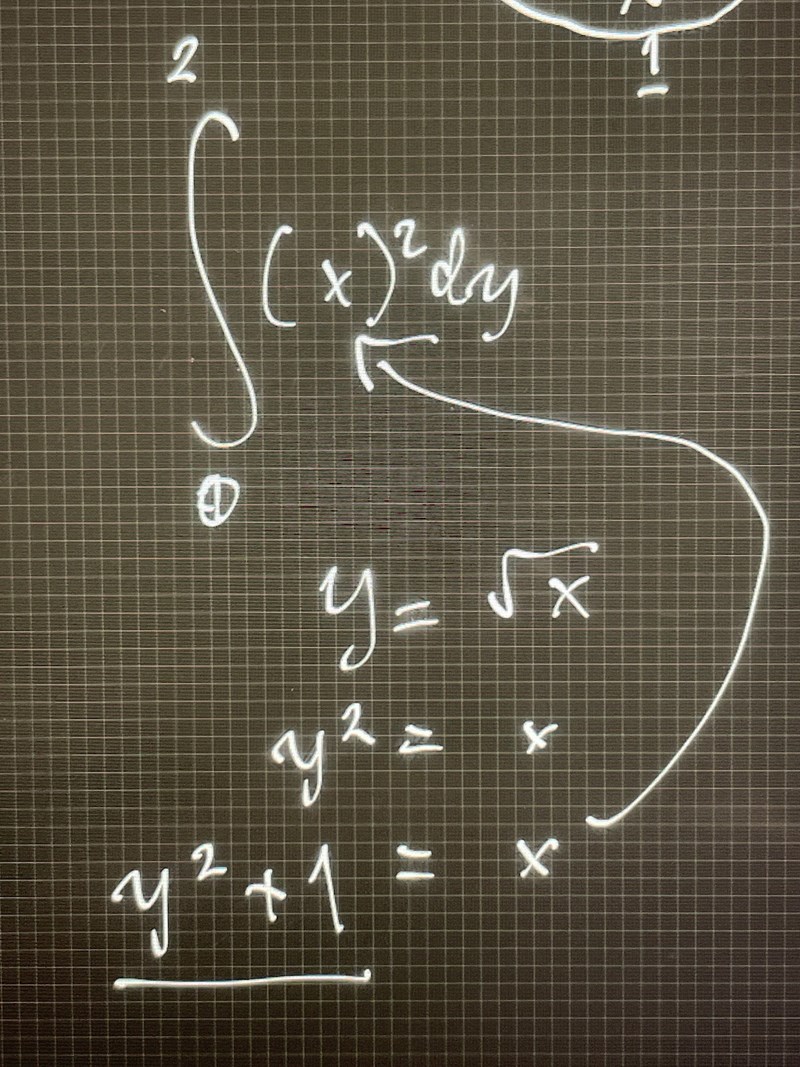 1
2
∫ (x)² dy
0
y = √x
y² = x
y² + 1 = x